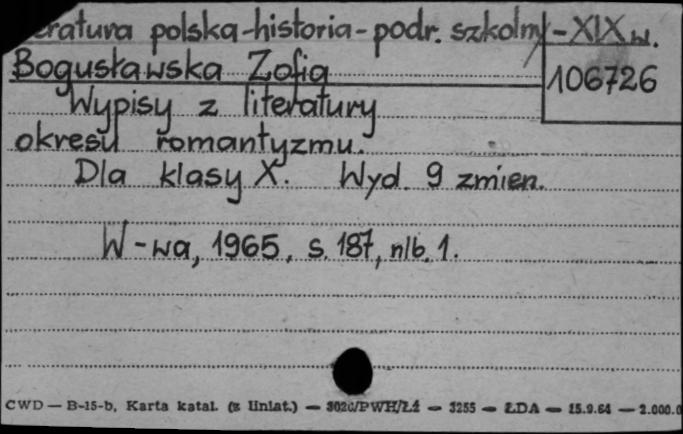 eratura polska-historia-podr. szkolny-XIX w.
Bogusławska Zofia
106726
Wypisy z literatury
okresu romantyzmu.
Dla klasy X. Wyd. 9 zmien.
W-wa, 1965, s. 187, nlb. 1.
CWD — B-15-b, Karta katal. (z liniat.) — — 3255 — ŁDA — 15.9.64 — 2.000.0